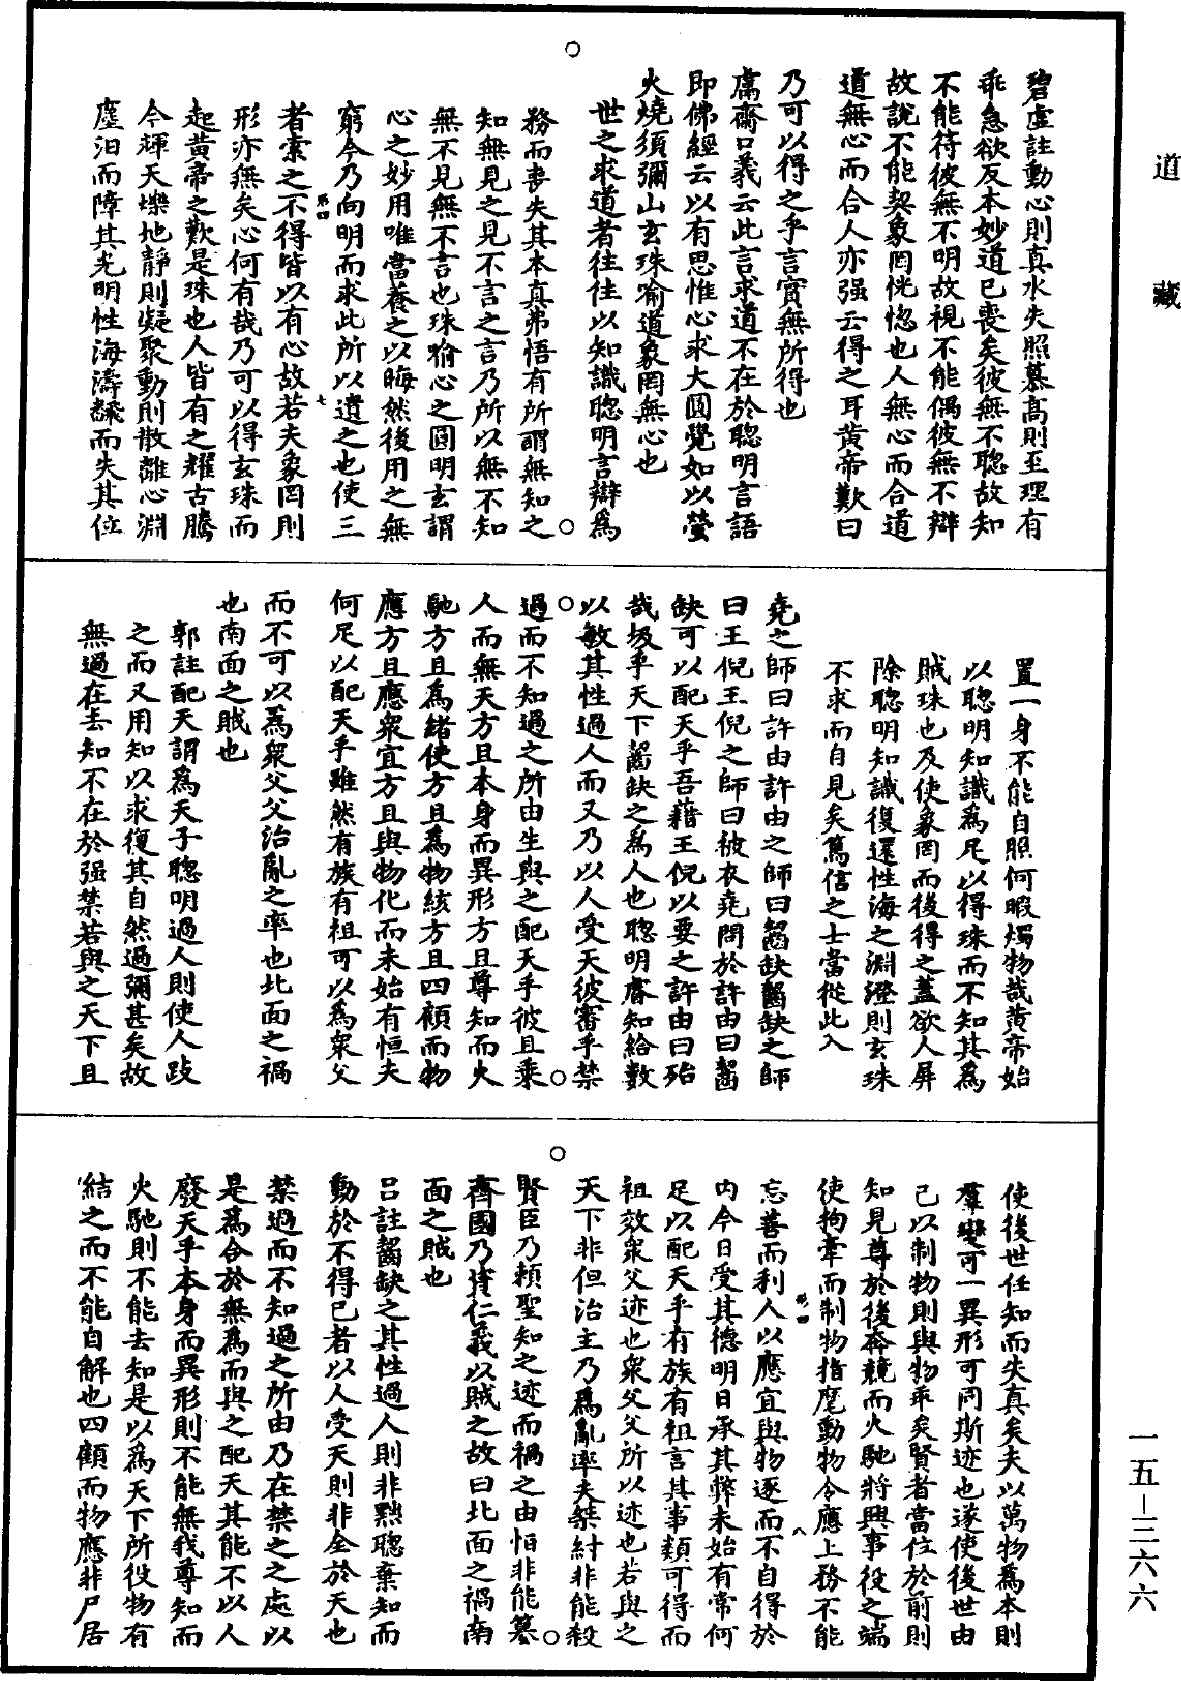 道藏
碧虛註動心則真水失照慕高則至理有
乖急欲反本妙道已喪矣彼無不聰故知
不能待彼無不明故視不能偶彼無不辯
故說不能契象罔恍惚也人無心而合道
道無心而合人亦强云得之耳黄帝歎曰
乃可以得之乎言實無所得也
鬳齋口義云此言求道不在於聰明言語
即佛經云以有思惟心求大圓覺如以螢
火燒須彌山玄珠喻道象罔無心也
世之求道者往往以知識聰明言辯爲
務而喪失其本真弗悟有所謂無知之
知無見之見不言之言乃所以無不知
無不見無不言也珠喻心之圓明玄謂
心之妙用唯當養之以晦然後用之無
窮今乃向明而求此所以遺之也使三
者索之不得皆以有心故若夫象罔則
形亦無矣心何有哉乃可以得玄珠而
起黄帝之歎是珠也人皆有之耀古騰
今輝天爍地靜則凝聚動則散離心淵
塵汩而障其光明性海濤飜而失其位
置一身不能自照何暇燭物哉黄帝始
以聰明知識爲足以得珠而不知其爲
賊珠也及使象罔而後得之蓋欲人屏
除聰明知識復還性海之淵澄則玄珠
不求而自見矣篤信之士當從此入
堯之師曰許由許由之師曰齧缺齧缺之師
曰王倪王倪之師曰被衣堯問於許由曰齧
缺可以配天乎吾藉王倪以要之許由曰殆
哉圾乎天下齧缺之爲人也聰明睿知給數
以敏其性過人而又乃以人受天彼審乎禁
過而不知過之所由生與之配天乎彼且乘
人而無天方且本身而異形方且尊知而火
馳方且爲緒使方且爲物絯方且四顧而物
應方且應衆宜方且與物化而未始有恒夫
何足以配天乎雖然有族有祖可以爲衆父
而不可以爲衆父父治亂之率也北面之禍
也南面之賊也
郭註配天謂爲天子聰明過人則使人跂
之而又用知以求復其自然過彌甚矣故
無過在去知不在於强禁若與之天下且
使後世任知而失真矣夫以萬物爲本則
羣變可一異形可同斯迹也遂使後世由
己以制物則與物乖矣賢者當位於前則
知見尊於後奔競而火馳將興事役之端
使拘牽而制物指麾動物令應上務不能
忘善而利人以應宜與物逐而不自得於
内今日受其德明日承其弊未始有常何
足以配天乎有族有祖言其事類可得而
祖效衆父迹也衆父父所以迹也若與之
天下非但治主乃爲亂率夫桀紂非能殺
賢臣乃賴聖知之迹而禍之由怕非能簒
齊國乃資仁義以賊之故曰北面之禍南
面之賊也
吕註齧缺之其性過人則非黜聰棄知而
動於不得已者以人受天則非全於天也
禁過而不知過之所由乃在禁之之處以
是爲合於無爲而與之配天其能不以人
廢天乎本身而異形則不能無我尊知而
火馳則不能去知是以爲天下所役物有
結之而不能自解也四顧而物應非尸居
一五－三六六